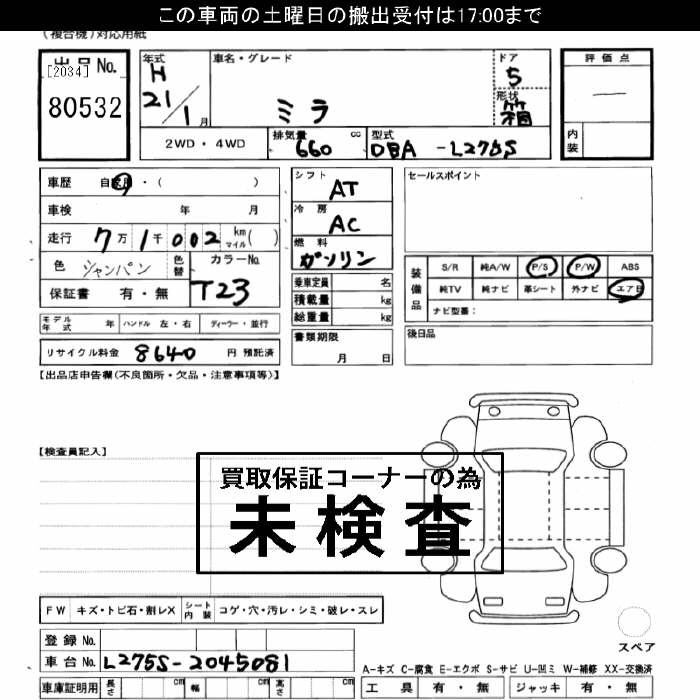 この車両の土曜日の搬出受付は17:00まで
(複合機)対応用紙
出品No.
[2034]
80532
年式
H
21/1月
車名・グレード
ミラ
ドア
5
形状
箱
評価点
内装
2WD・4WD
排気量 cc
660
型式
DBA -L275S
車歴 自家用・( )
車検 年 月
走行 7万1千002 km マイル( )
色 シャンパン 色替 カラーNo.
T23
保証書 有・無
シフト
AT
冷房
AC
燃料
ガソリン
乗車定員 名
積載量 kg
総重量 kg
セールスポイント
装備品
S/R 純A/W P/S P/W ABS
純TV 純ナビ 革シート 外ナビ エアB
ナビ型番:
モデル年式 年 ハンドル 左・右 ディーラー・並行
書類期限
月 日
後日品
リサイクル料金 8640 円 預託済
【出品店申告欄(不良箇所・欠品・注意事項等)】
【検査員記入】
買取保証コーナーの為
未検査
FW キズ・トビ石・割レX シート内装 コゲ・穴・汚レ・シミ・破レ・スレ
登録No.
車台No. L275S-2045081
スペア
A-キズ C-腐食 E-エクボ S-サビ U-凹ミ W-補修 XX-交換済
車庫証明用 長さ cm 幅 cm 高さ cm
工具 有・無 ジャッキ 有・無